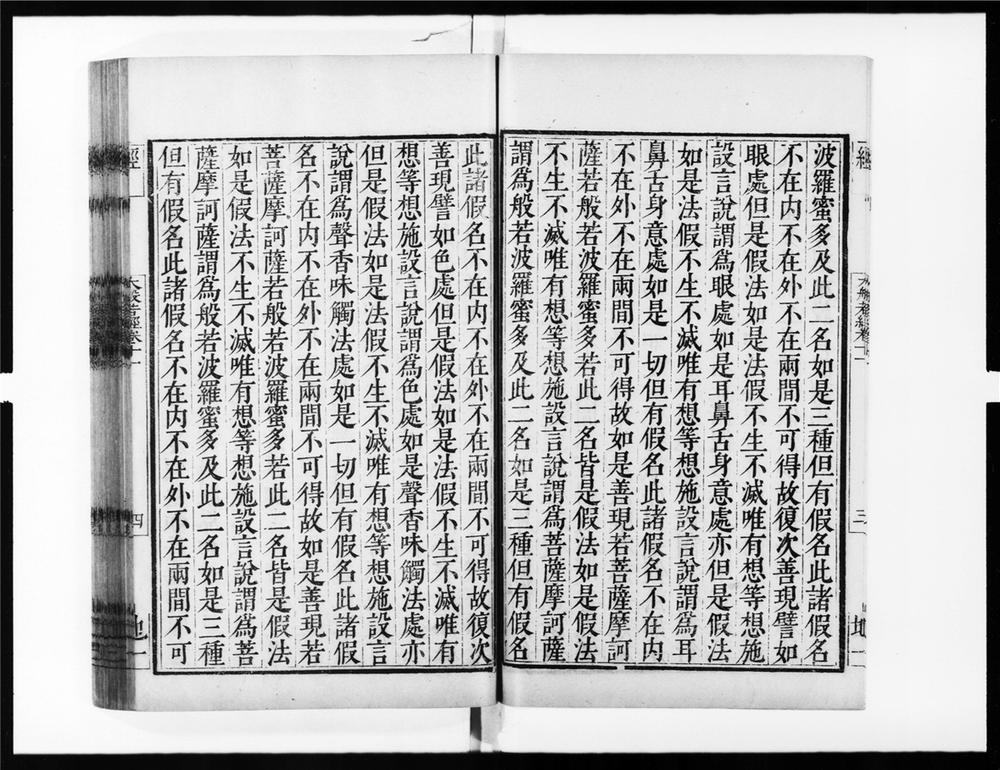 經 大般若經卷十一 三 地一
波羅蜜多及此二名如是三種但有假名此諸假名
不在内不在外不在兩間不可得故復次善現譬如
眼處但是假法如是法假不生不滅唯有想等想施
設言說謂爲眼處如是耳鼻舌身意處亦但是假法
如是法假不生不滅唯有想等想施設言說謂爲耳
鼻舌身意處如是一切但有假名此諸假名不在内
不在外不在兩間不可得故如是善現若菩薩摩訶
薩若般若波羅蜜多若此二名皆是假法如是假法
不生不滅唯有想等想施設言說謂爲菩薩摩訶薩
謂爲般若波羅蜜多及此二名如是三種但有假名
此諸假名不在内不在外不在兩間不可得故復次
善現譬如色處但是假法如是法假不生不滅唯有
想等想施設言說謂爲色處如是聲香味觸法處亦
但是假法如是法假不生不滅唯有想等想施設言
說謂爲聲香味觸法處如是一切但有假名此諸假
名不在内不在外不在兩間不可得故如是善現若
菩薩摩訶薩若般若波羅蜜多若此二名皆是假法
如是假法不生不滅唯有想等想施設言說謂爲菩
薩摩訶薩謂爲般若波羅蜜多及此二名如是三種
但有假名此諸假名不在内不在外不在兩間不可
經 大般若經卷十一 四 地一